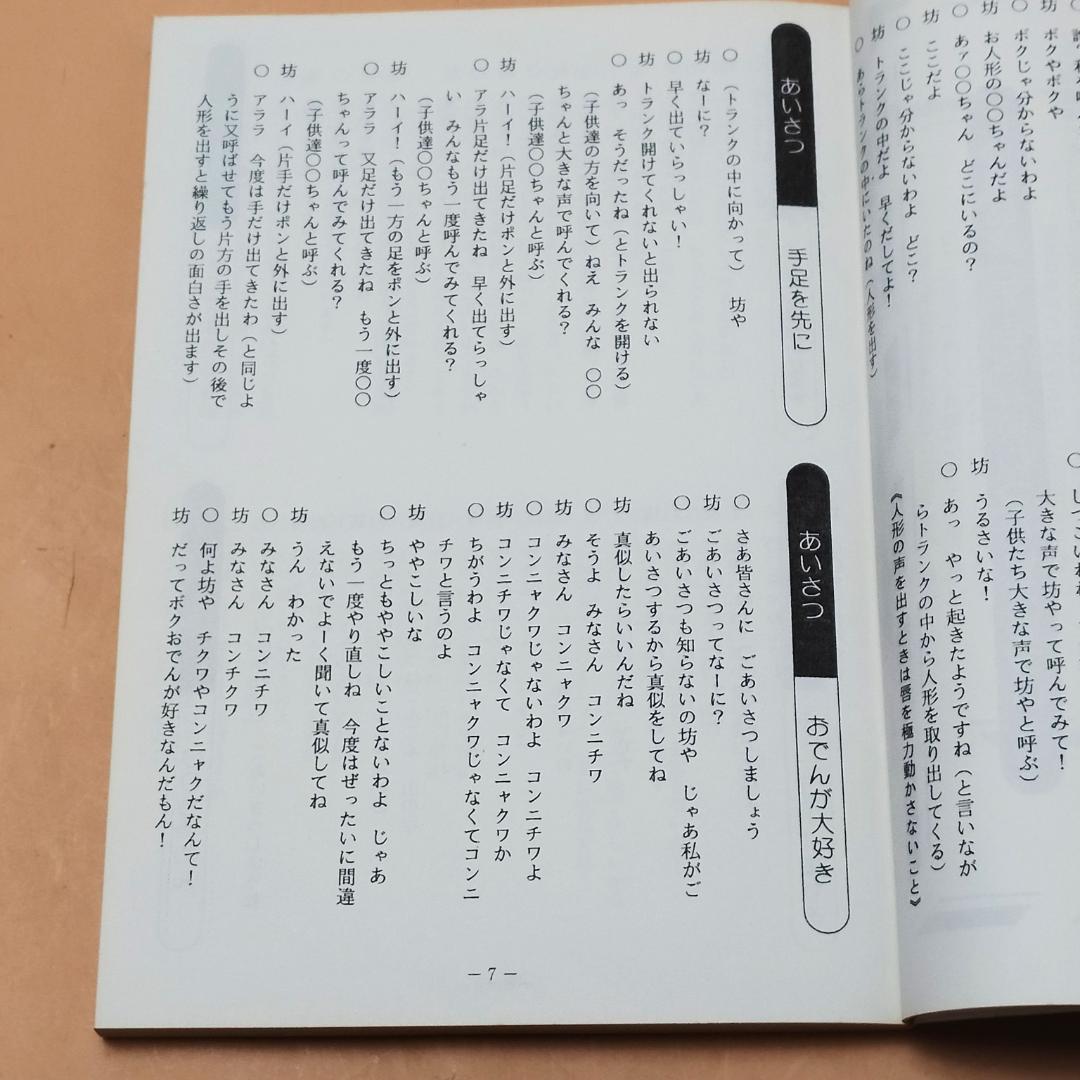 ボクやボク
ボクじゃ分からないわよ
坊 お人形の〇〇ちゃんだよ
〇 あァ〇〇ちゃん どこにいるの？
坊 ここだよ
〇 ここじゃ分からないわよ どこ？
坊 トランクの中だよ 早くだしてよ！
〇 あらトランクの中にいたのね（人形を出す）
大きな声で坊やって呼んでみて！
（子供たち大きな声で坊やと呼ぶ）
坊 うるさいな！
〇 あっ やっと起きたようですね（と言いなが
らトランクの中から人形を取り出してくる）
《人形の声を出すときは唇を極力動かさないこと》
あいさつ 手足を先に
〇 （トランクの中に向かって） 坊や
坊 なーに？
〇 早く出ていらっしゃい！
坊 トランク開けてくれないと出られない
〇 あっ そうだったね（とトランクを開ける）
（子供達の方を向いて）ねえ みんな 〇〇
ちゃんと大きな声で呼んでくれる？
（子供達〇〇ちゃんと呼ぶ）
坊 ハーイ！（片足だけポンと外に出す）
〇 アララ片足だけ出てきたね 早く出てらっしゃ
い みんなもう一度呼んでみてくれる？
（子供達〇〇ちゃんと呼ぶ）
坊 ハーイ！（もう一方の足をポンと外に出す）
〇 アララ 又足だけ出てきたね もう一度〇〇
ちゃんって呼んでみてくれる？
（子供達〇〇ちゃんと呼ぶ）
坊 ハーイ（片手だけポンと外に出す）
〇 アララ 今度は手だけ出てきたわ（と同じよ
うに又呼ばせてもう片方の手を出しその後で
人形を出すと繰り返しの面白さが出ます）
あいさつ おでんが大好き
〇 さあ皆さんに ごあいさつしましょう
坊 ごあいさつってなーに？
〇 ごあいさつも知らないの坊や じゃあ私がご
あいさつするから真似をしてね
坊 真似したらいいんだね
〇 そうよ みなさん コンニチワ
坊 みなさん コンニャクワ
〇 コンニャクワじゃないわよ コンニチワよ
坊 コンニチワじゃなくて コンニャクワか
〇 ちがうわよ コンニャクワじゃなくてコンニ
チワと言うのよ
坊 ややこしいな
〇 ちっともややこしいことないわよ じゃあ
もう一度やり直しね 今度はぜったいに間違
えないでよーく聞いて真似してね
坊 うん わかった
〇 みなさん コンニチワ
坊 みなさん コンチクワ
〇 何よ坊や チクワやコンニャクだなんて！
坊 だってボクおでんが好きなんだもん！
― 7 ―